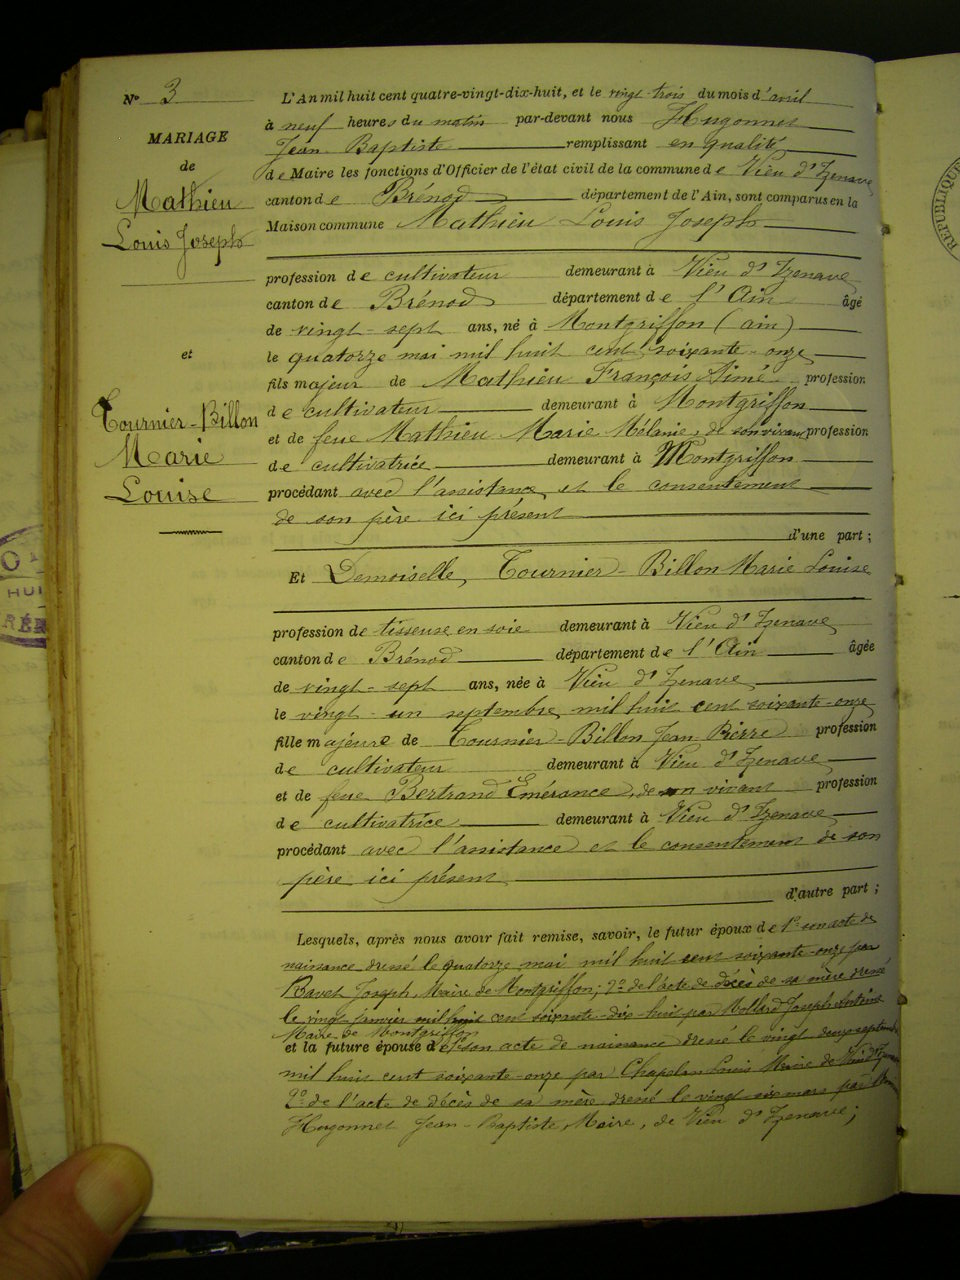 N° 3
MARIAGE
de
Mathieu
Louis Joseph
et
Tournier-Billon
Marie
Louise
L'An mil huit cent quatre-vingt-dix-huit, et le vingt-trois du mois d'avril
à neuf heures du matin par-devant nous Hugonnet
Jean Baptiste remplissant en qualité
de Maire les fonctions d'Officier de l'état civil de la commune de Vieu d'Izenave
canton de Brénod département de l'Ain, sont comparus en la
Maison commune Mathieu Louis Joseph
profession de cultivateur demeurant à Vieu d'Izenave
canton de Brénod département de l'Ain âgé
de vingt-sept ans, né à Montgriffon (ain)
le quatorze mai mil huit cent soixante-onze
fils majeur de Mathieu François Aimé profession
de cultivateur demeurant à Montgriffon
et de feue Mathieu Marie Mélanie, de son vivant profession
de cultivatrice demeurant à Montgriffon
procédant avec l'assistance et le consentement
de son père ici présent
d'une part ;
Et Demoiselle, Tournier-Billon Marie Louise
profession de tisseuse en soie demeurant à Vieu d'Izenave
canton de Brénod département de l'Ain âgée
de vingt-sept ans, née à Vieu d'Izenave
le vingt-un septembre mil huit cent soixante-onze
fille majeure de Tournier-Billon Jean-Pierre profession
de cultivateur demeurant à Vieu d'Izenave
et de feue Bertrand Émérance, de son vivant profession
de cultivatrice demeurant à Vieu d'Izenave
procédant avec l'assistance et le consentement de son
père ici présent
d'autre part ;
Lesquels, après nous avoir fait remise, savoir, le futur époux de 1° son acte de
naissance dressé le quatorze mai mil huit cent soixante-onze par
Joseph, Maire de Montgriffon; 2° de l'acte de décès de sa mère dressé
le vingt janvier mil huit cent soixante-dix-huit par Mollard Joseph Antoine
Maire de Montgriffon
et la future épouse de 1° son acte de naissance dressé le vingt-deux septembre
mil huit cent soixante-onze par Chapelan Louis Maire de Vieu d'Izenave
2° de l'acte de décès de sa mère dressé le vingt-six mars par
Hugonnet Jean-Baptiste, Maire, de Vieu d'Izenave;
RÉPUBLIQUE